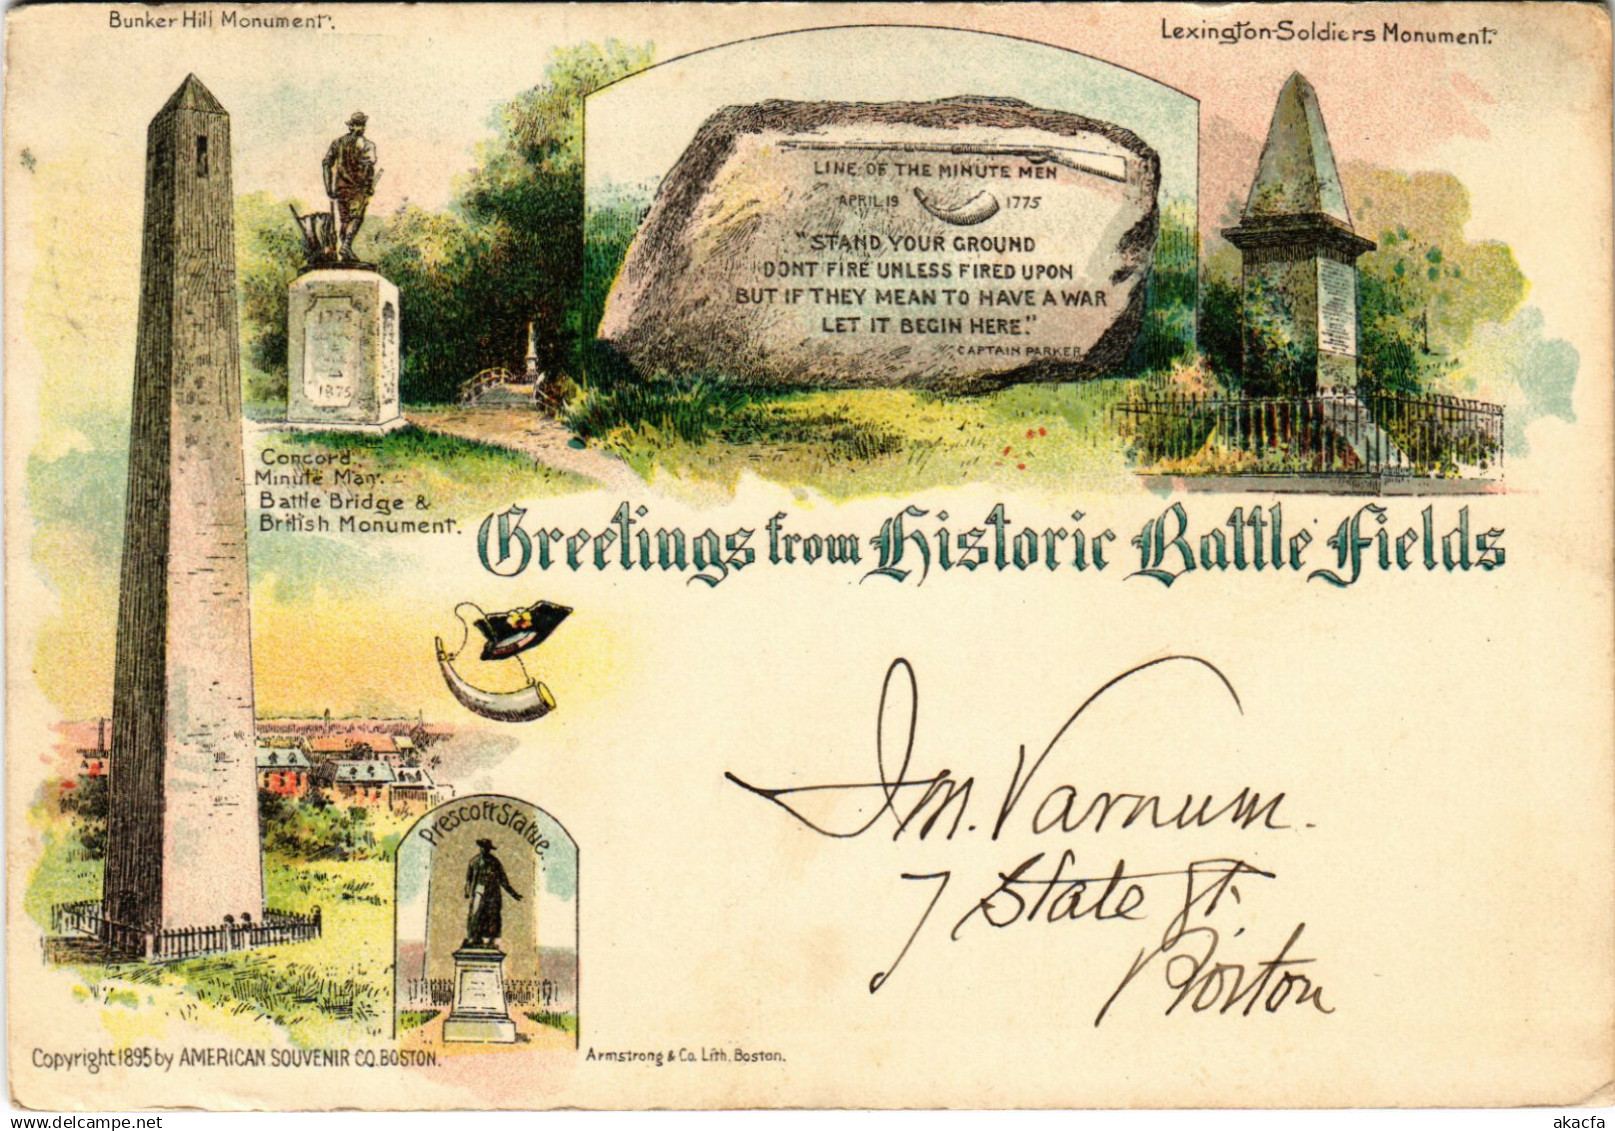 Bunker Hill Monument.
Lexington-Soldiers Monument.
LINE OF THE MINUTE MEN
APRIL 19 1775
"STAND YOUR GROUND
DONT FIRE UNLESS FIRED UPON
BUT IF THEY MEAN TO HAVE A WAR
LET IT BEGIN HERE."
CAPTAIN PARKER
1775
1875
Concord
Minute Man.
Battle Bridge &
British Monument.
Greetings from Historic Battle Fields
Prescott Statue.
Varnum.
7 State St.
Boston
Copyright 1895 by AMERICAN SOUVENIR CO. BOSTON.
Armstrong & Co. Lith. Boston.
delcampe.net
akacfa